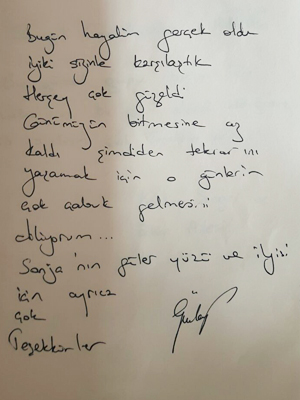 Bugün hayalim gerçek oldu
iyiki sizinle karşılaştık
Herşey çok güzeldi
Günümüzün bitmesine az
kaldı şimdiden tekrar'ını
yaşamak için o günlerin
çok çabuk gelmesini
diliyorum...
Sonja'nın güler yüzü ve ilgisi
için ayrıca
çok
Teşekkürler